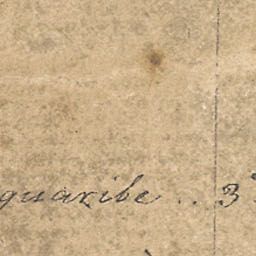 guaribe .. 3